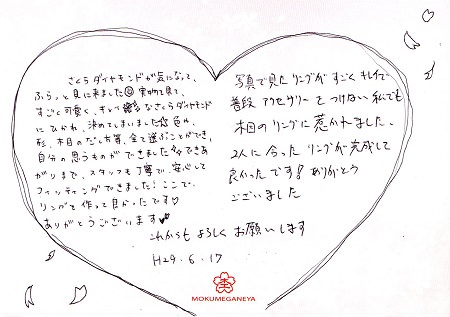 さくらダイヤモンドが気になって、
ふらっと見に来ました☺ 実物を見て、
すごく可愛く、キレイなさくらダイヤモンド
にひかれ、決めてしまいました 色や、
形、木目のだし方等、全て選ぶことができ、
自分の思うものができました でき
あがりまで、スタッフも丁寧で、安心して
フィッティングできました!ここで、
リングを作って良かったです♡
ありがとうございます
写真で見たリングがすごくキレイで
普段アクセサリーをつけない私でも
木目のリングに惹かれました。
2人に合ったリングが完成して
良かったです!ありがとう
ございました
これからもよろしくお願いします
H29.6.17
MOKUMEGANEYA